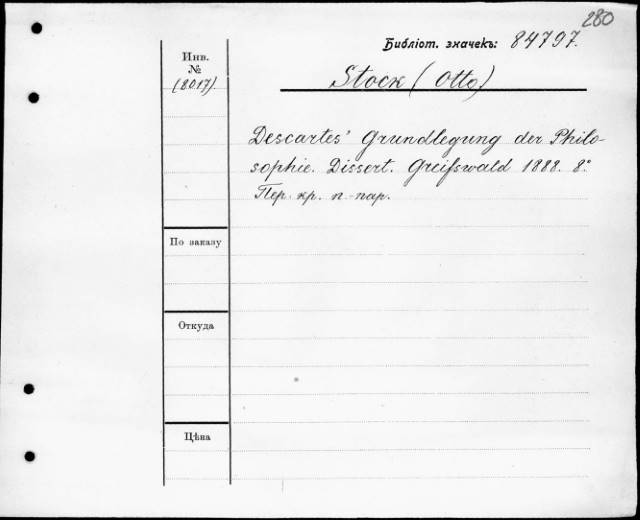 280
Библіот. значекъ: 84797.
Инв.
№
(8017).
Stock (Otto)
Descartes' Grundlegung der Philo-
sophie. Dissert. Greifswald 1888. 8°
Пер. кр. п.-пар.
По заказу
Откуда
Цѣна